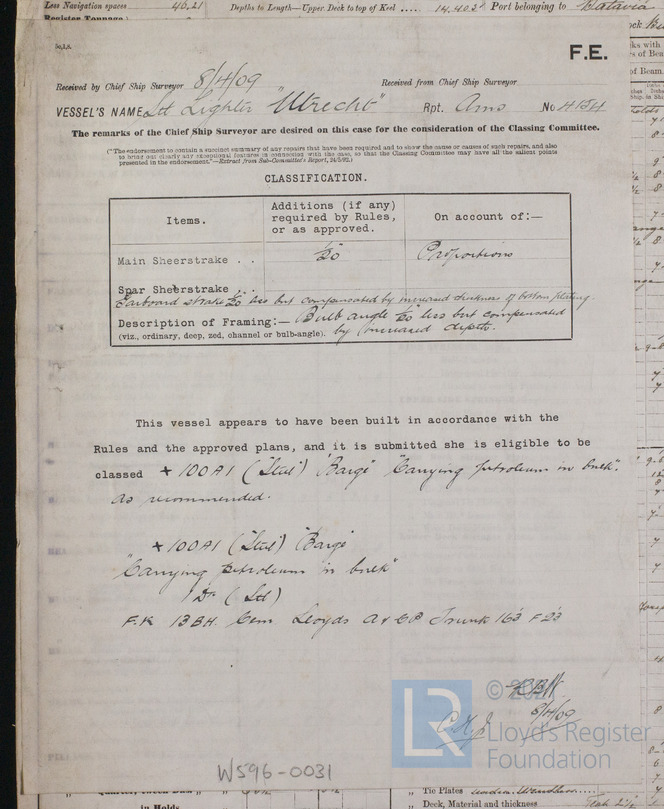 Less Navigation spaces 40.21 Depths to Length—Upper Deck to top of Keel .... 14.402 Port belonging to Batavia
Register Tonnage
5c,l,s.
F.E.
Received by Chief Ship Surveyor 8/4/09 Received from Chief Ship Surveyor
VESSEL'S NAME Lighter "Utrecht" Rpt. Ams No 4154
The remarks of the Chief Ship Surveyor are desired on this case for the consideration of the Classing Committee.
("The endorsement to contain a succinct summary of any repairs that have been required and to show the cause or causes of such repairs, and also
to bring out clearly any exceptional features in connection with the case, so that the Classing Committee may have all the salient points
presented in the endorsement."—Extract from Sub-Committee's Report, 24/5/92.)
CLASSIFICATION.
Items.
Additions (if any)
required by Rules,
or as approved.
On account of:—
Main Sheerstrake . . 1/20 Proportions
Spar Sheerstrake . .
Garboard strake 1/20 less but compensated by increased thickness of bottom plating.
Description of Framing:— Bulb angle 1/20 less but compensated
(viz., ordinary, deep, zed, channel or bulb-angle). by increased depth.
This vessel appears to have been built in accordance with the
Rules and the approved plans, and it is submitted she is eligible to be
classed + 100A1 (Stal) "Barge" "Carrying petroleum in bulk".
as recommended.
+ 100A1 (Stal) "Barge"
"Carrying petroleum in bulk"
1 Dk (Stl)
F.K 13BH. Cem Lloyds A & CP Trunk 163 F 23
8/4/09
© 20
LR
Lloyd's Register
Foundation
W596-0031
in Holds
„ Tie Plates
„ Deck, Material and thickness Teak 2 1/2